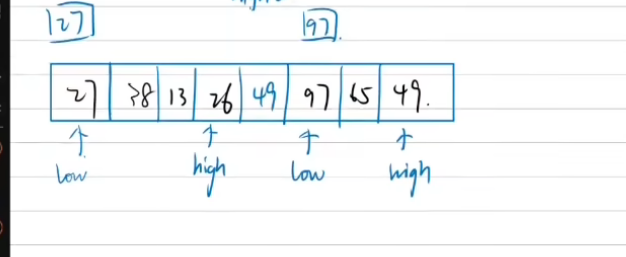 27 97
27 38 13 26 49 97 65 49
low high low high